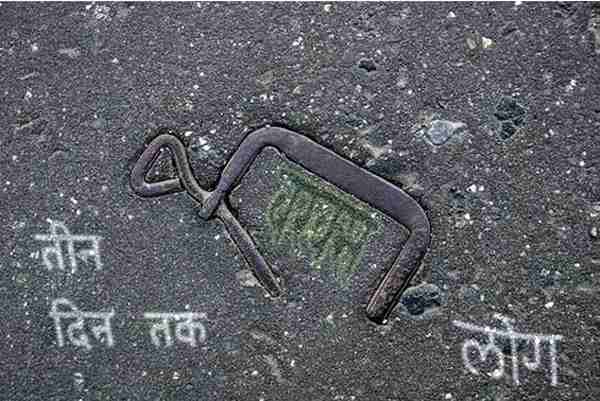 तीन
दिन तक
लोग